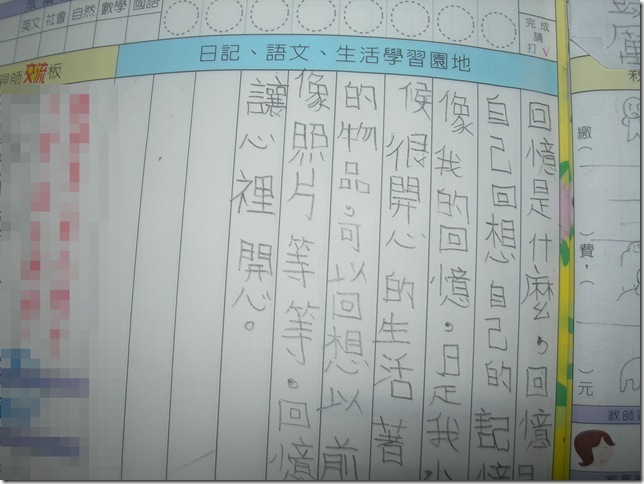 英文 社會 自然 數學 國語
完成請打√
日記、語文、生活學習園地
親師交流板
回憶是什麼，回憶
自己回想自己的記憶
像我的回憶，是我小
候很開心的生活著
的物品，可以回想以前
像照片等等。回憶
讓心裡開心。
繳( )費，( )元
教師